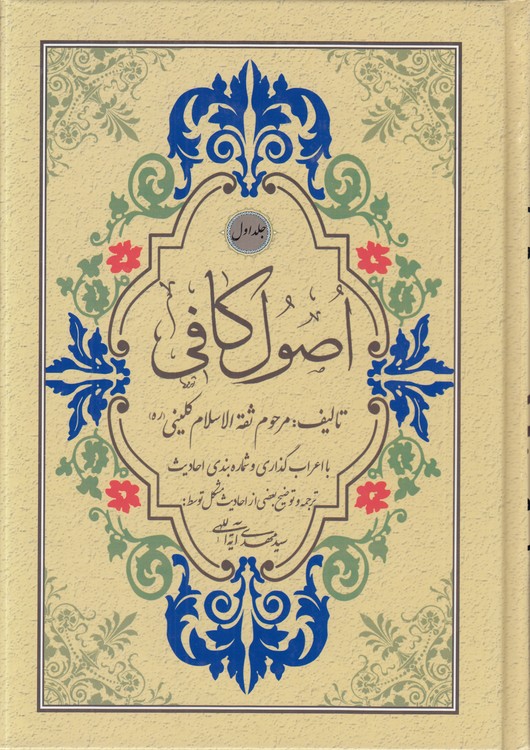 جلد اول
اُصُول کافی
تالیف: مرحوم ثقة الاسلام کلینی (ره)
با اعراب گذاری و شماره بندی احادیث
ترجمه و توضیح بعضی از احادیث مشکل توسط:
سید مهدی آیة اللهی